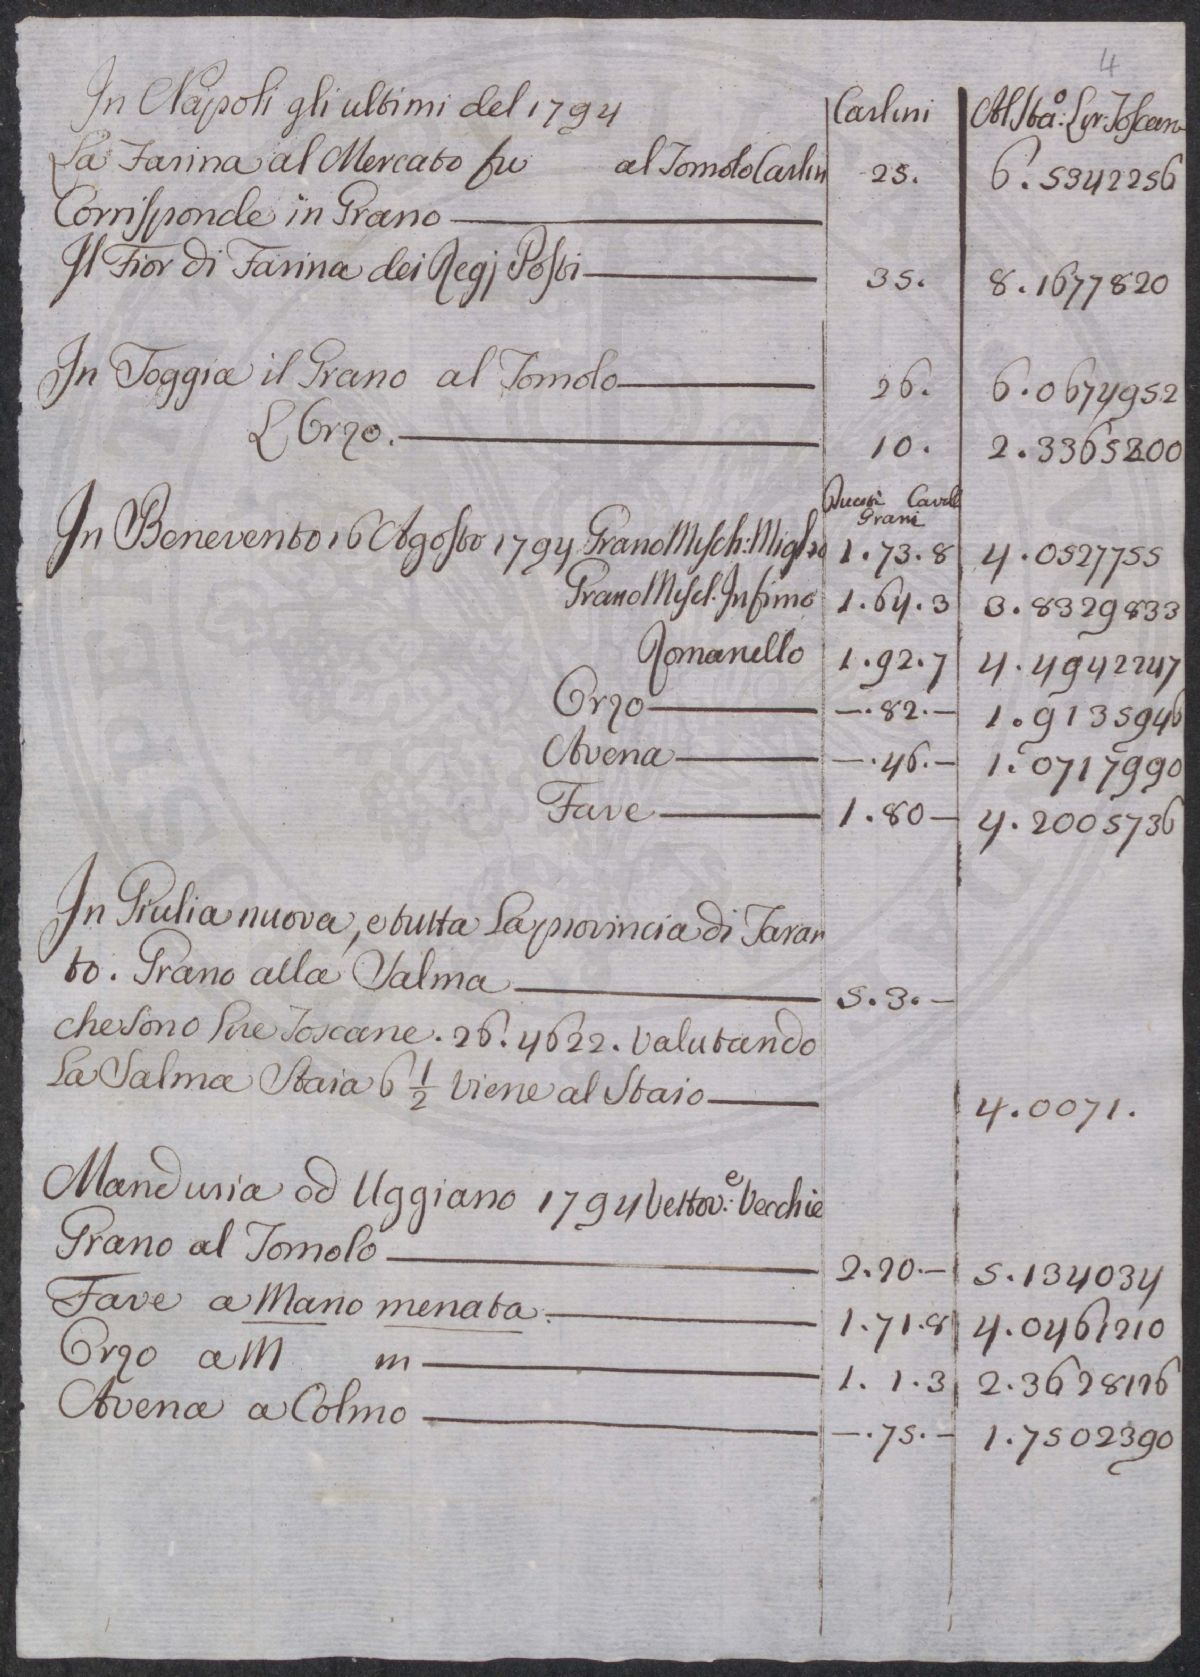 4
In Napoli gli ultimi del 1794 Carlini Al Sta:º Lir: Toscan
La Farina al Mercato fu al Tomolo Carlin 25. 6.5342256
Corrisponde in Grano
Il Fior di Farina dei Regj Posti 35. 8.1677820
In Foggia il Grano al Tomolo 26. 6.0674952
L'Orzo. 10. 2.3365200
Ducati Cavalli
Grani
In Benevento 16 Agosto 1794 Grano Misch: Miglio 1.73.8 4.0527755
Grano Mischl. Infimo 1.64.3 3.8329833
Romanello 1.92.7 4.4942247
Orzo —.82.— 1.9135946
Avena —.46.— 1.0717990
Fave 1.80— 4.2005736
In Giulia nuova, e tutta La provincia di Taran
to. Grano alla Salma 5.3.—
che sono Lire Toscane. 26.4622. Valutando
La Salma Staia 6 1/2 Viene al Staio 4.0071.
Manduria ed Uggiano 1794 Vettov:e Vecchie
Grano al Tomolo 2.20.— 5.134034
Fave a Mano menata. 1.71.8 4.0461210
Orzo a M m 1.1.3 2.3628126
Avena a Colmo —.75.— 1.7502390